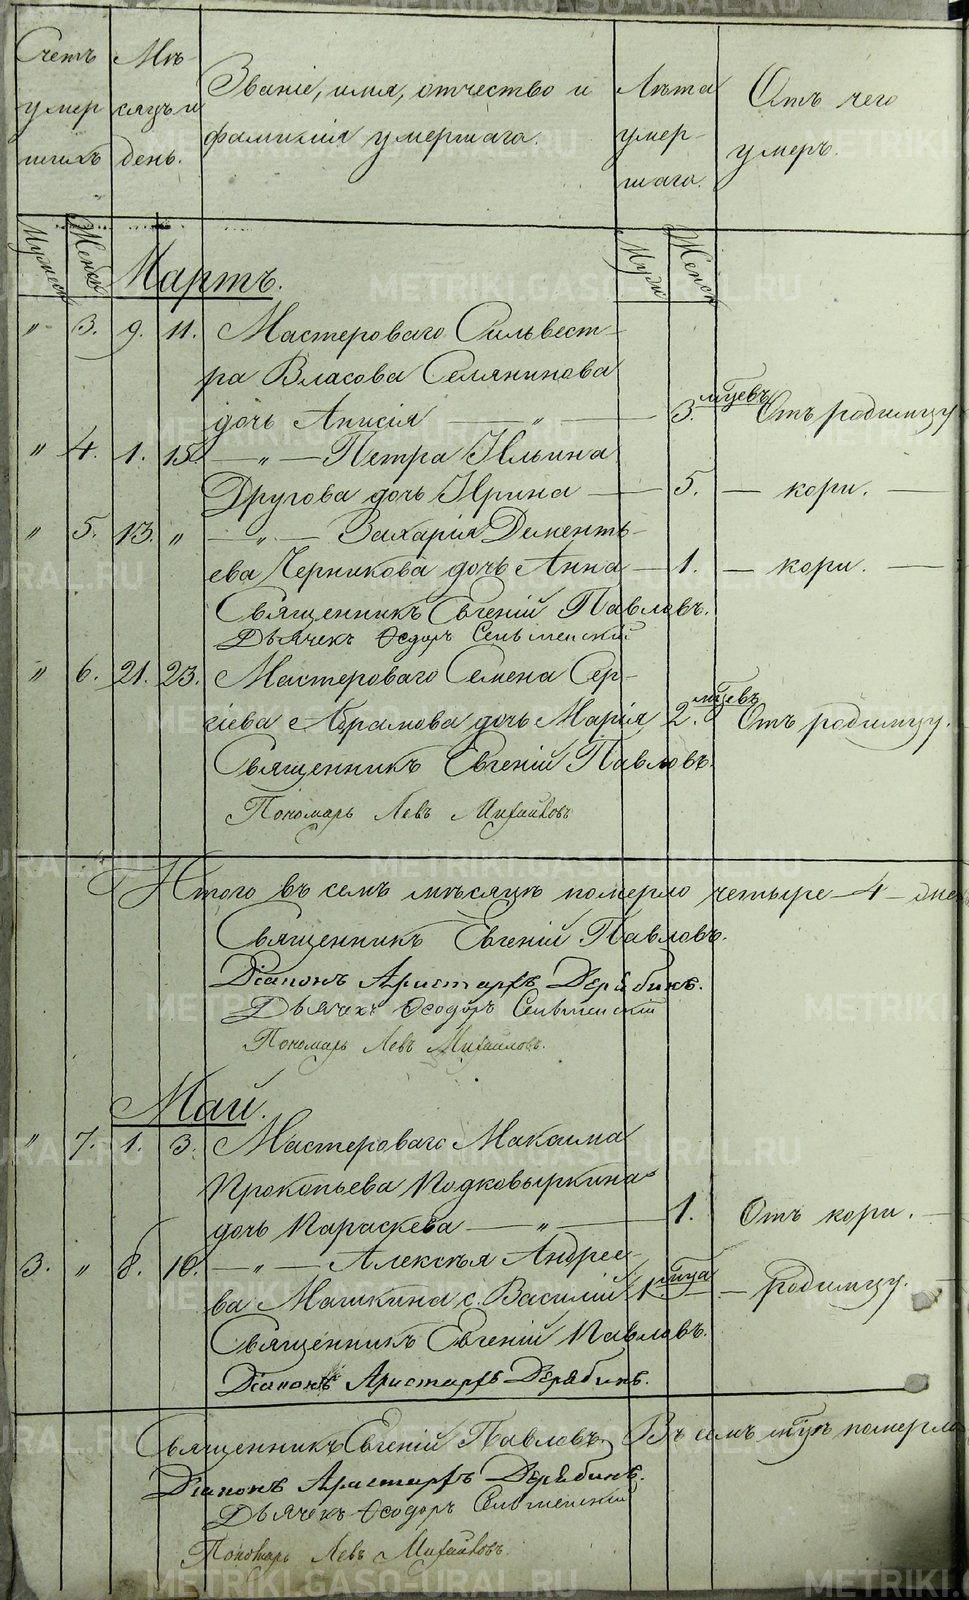 Счетъ умер шихъ
Мѣ сяцъ и день.
Званіе, имя, отчество и
фамилія умершаго.
Лѣта умер- шаго.
Отъ чего умеръ.
Мужеск Женск Мужс Женск
Мартъ.
" 3. 9. 11. Мастероваго Сильвест-
ра Власова Селянинова
дочь Анисія — " — 3. мѣцевъ Отъ родимцу
" 4. 1. 15. — " — Петра Ильина
Другова дочь Ирина — 5. — кори. —
" 5. 13. " — " — Захарія Дементь-
ева Черникова дочь Анна — 1. — кори. —
Священникъ Евгеній Павловъ.
Дьячекъ Ѳедоръ
" 6. 21. 23. Мастероваго Семена Сер-
гіева Абрамова дочь Марія 2. мѣцевъ Отъ родимцу.
Священникъ Евгеній Павловъ.
Пономарь Левъ Михайловъ
Итого въ семъ мѣсяцѣ померло четыре — 4 —
Священникъ Евгеній Павловъ.
Діаконъ Аристархъ Дерябинъ.
Дьячекъ Ѳеодоръ
Пономарь Левъ Михайловъ.
Май.
" 7. 1. 3. Мастероваго Максима
Прокопьева Подковыркина
дочь Параскева — " — 1. Отъ кори. —
3. " 8. 10. — " — Алексѣя Андрее-
ва Машкина с. Василій 1 мѣца — родимцу. —
Священникъ Евгеній Павловъ.
Діаконъ Аристархъ Дерябинъ.
Священникъ Евгеній Павловъ. Въ семъ мѣцѣ померло
Діаконъ Аристархъ Дерябинъ.
Дьячекъ Ѳеодоръ
Пономарь Левъ Михайловъ.
METRIKI.GASO-URAL.RU